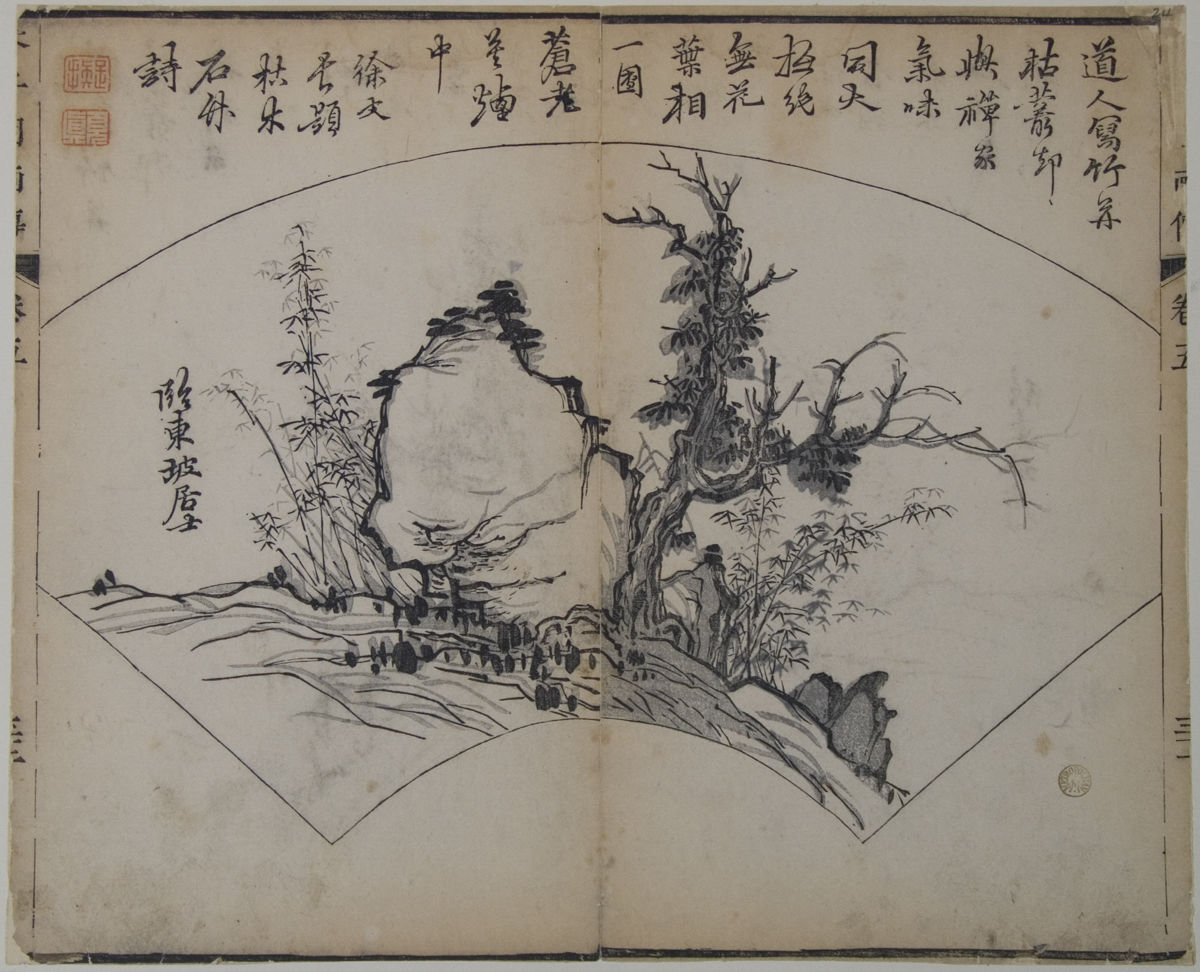 道人寫竹并
枯叢却
與禪家
氣味
同大
抵絕
無花
葉相
一團
蒼老
莫煙
中
徐文
長題
枯木
石竹
詩
臨東坡居士
卷五
卷五